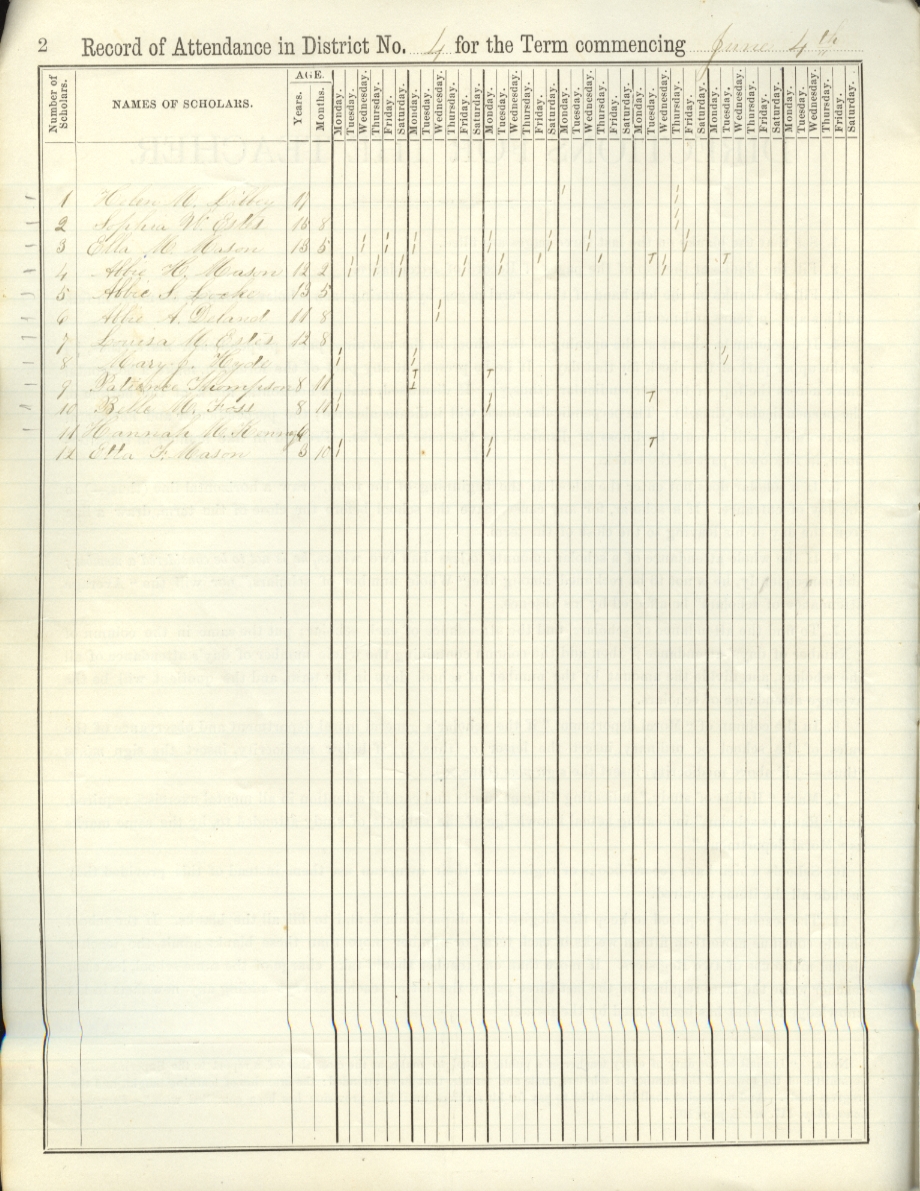 2 Record of Attendance in District No. 4 for the Term commencing June 4th
Number of Scholars. NAMES OF SCHOLARS. AGE. Years. Months. Monday. Tuesday. Wednesday. Thursday. Friday. Saturday. Monday. Tuesday. Wednesday. Thursday. Friday. Saturday. Monday. Tuesday. Wednesday. Thursday. Friday. Saturday. Monday. Tuesday. Wednesday. Thursday. Friday. Saturday. Monday. Tuesday. Wednesday. Thursday. Friday. Saturday. Monday. Tuesday. Wednesday. Thursday. Friday. Saturday. Monday. Tuesday. Wednesday. Thursday. Friday. Saturday.
1 Helen M. 17
2 Sophia W. Estes 15 8
3 Etta M. Mason 15 5
4 Abbie H. Mason 12 2 T T
5 Abbie S. Locke 13 5
6 Abbie A. 11 8
7 Louisa M. Estes 12 8
8 Mary J. Hyde
9 Patience Thompson 8 11 T T
10 Belle M. Foss 8 11 T
11 Hannah
12 Etta F. Mason 3 10 T